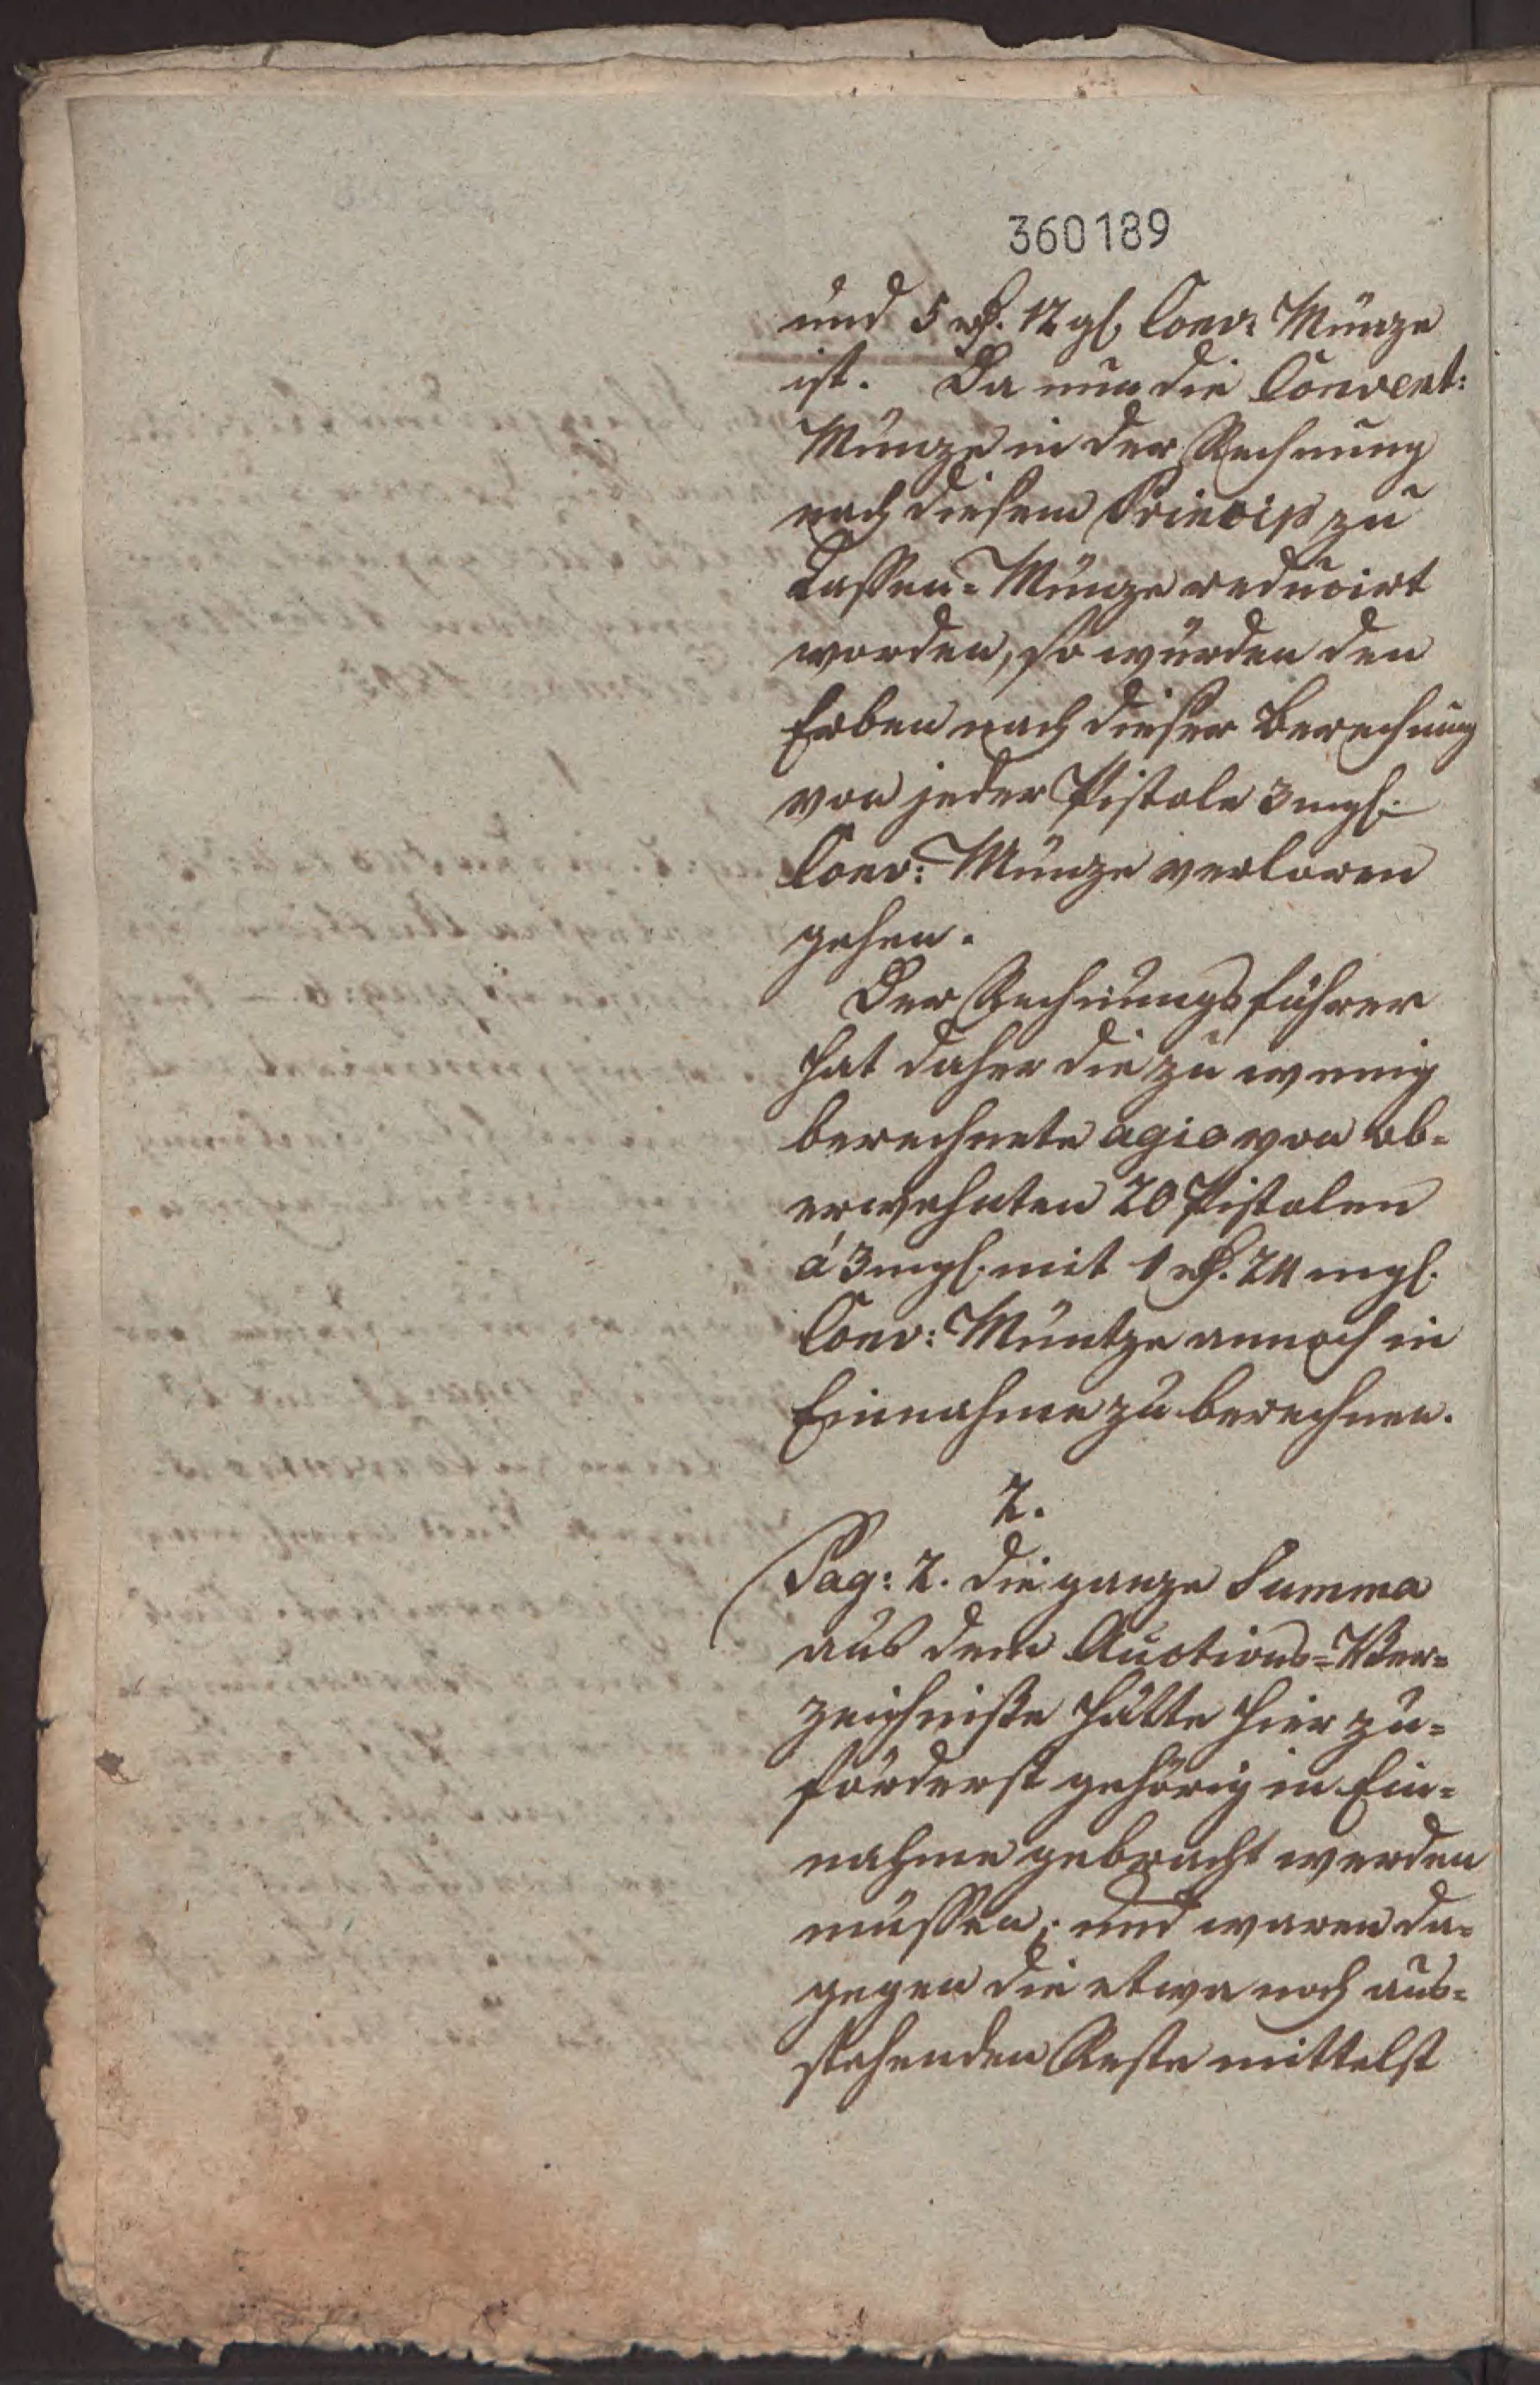 360189
und 5 rth. 12 gl. Conv: Münze
ist. Da nun die Convent:
Münze in der Rechnung
nach diesem Princip zu
Cassen-Münze reducirt
worden, so würden den
Erben nach dieser Berechnung
von jeder Pistole 3 mgl.
Conv: Münze verloren
gehen.
Der Rechnungsführer
hat daher die zu wenig
berechnete agio von ob-
erwehnten 20 Pistolen
á 3 mgl. mit 1 rth. 24 mgl.
Conv: Müntze annoch in
Einnahme zu berechnen.
2.
Pag: 2. die ganze Summa
aus dem Auctions-Ver-
zeichniße hätte hier zu-
förderst gehörig in Ein-
nahme gebracht werden
müssen; und waren da-
gegen die etwa noch aus-
stehenden Reste mittelst